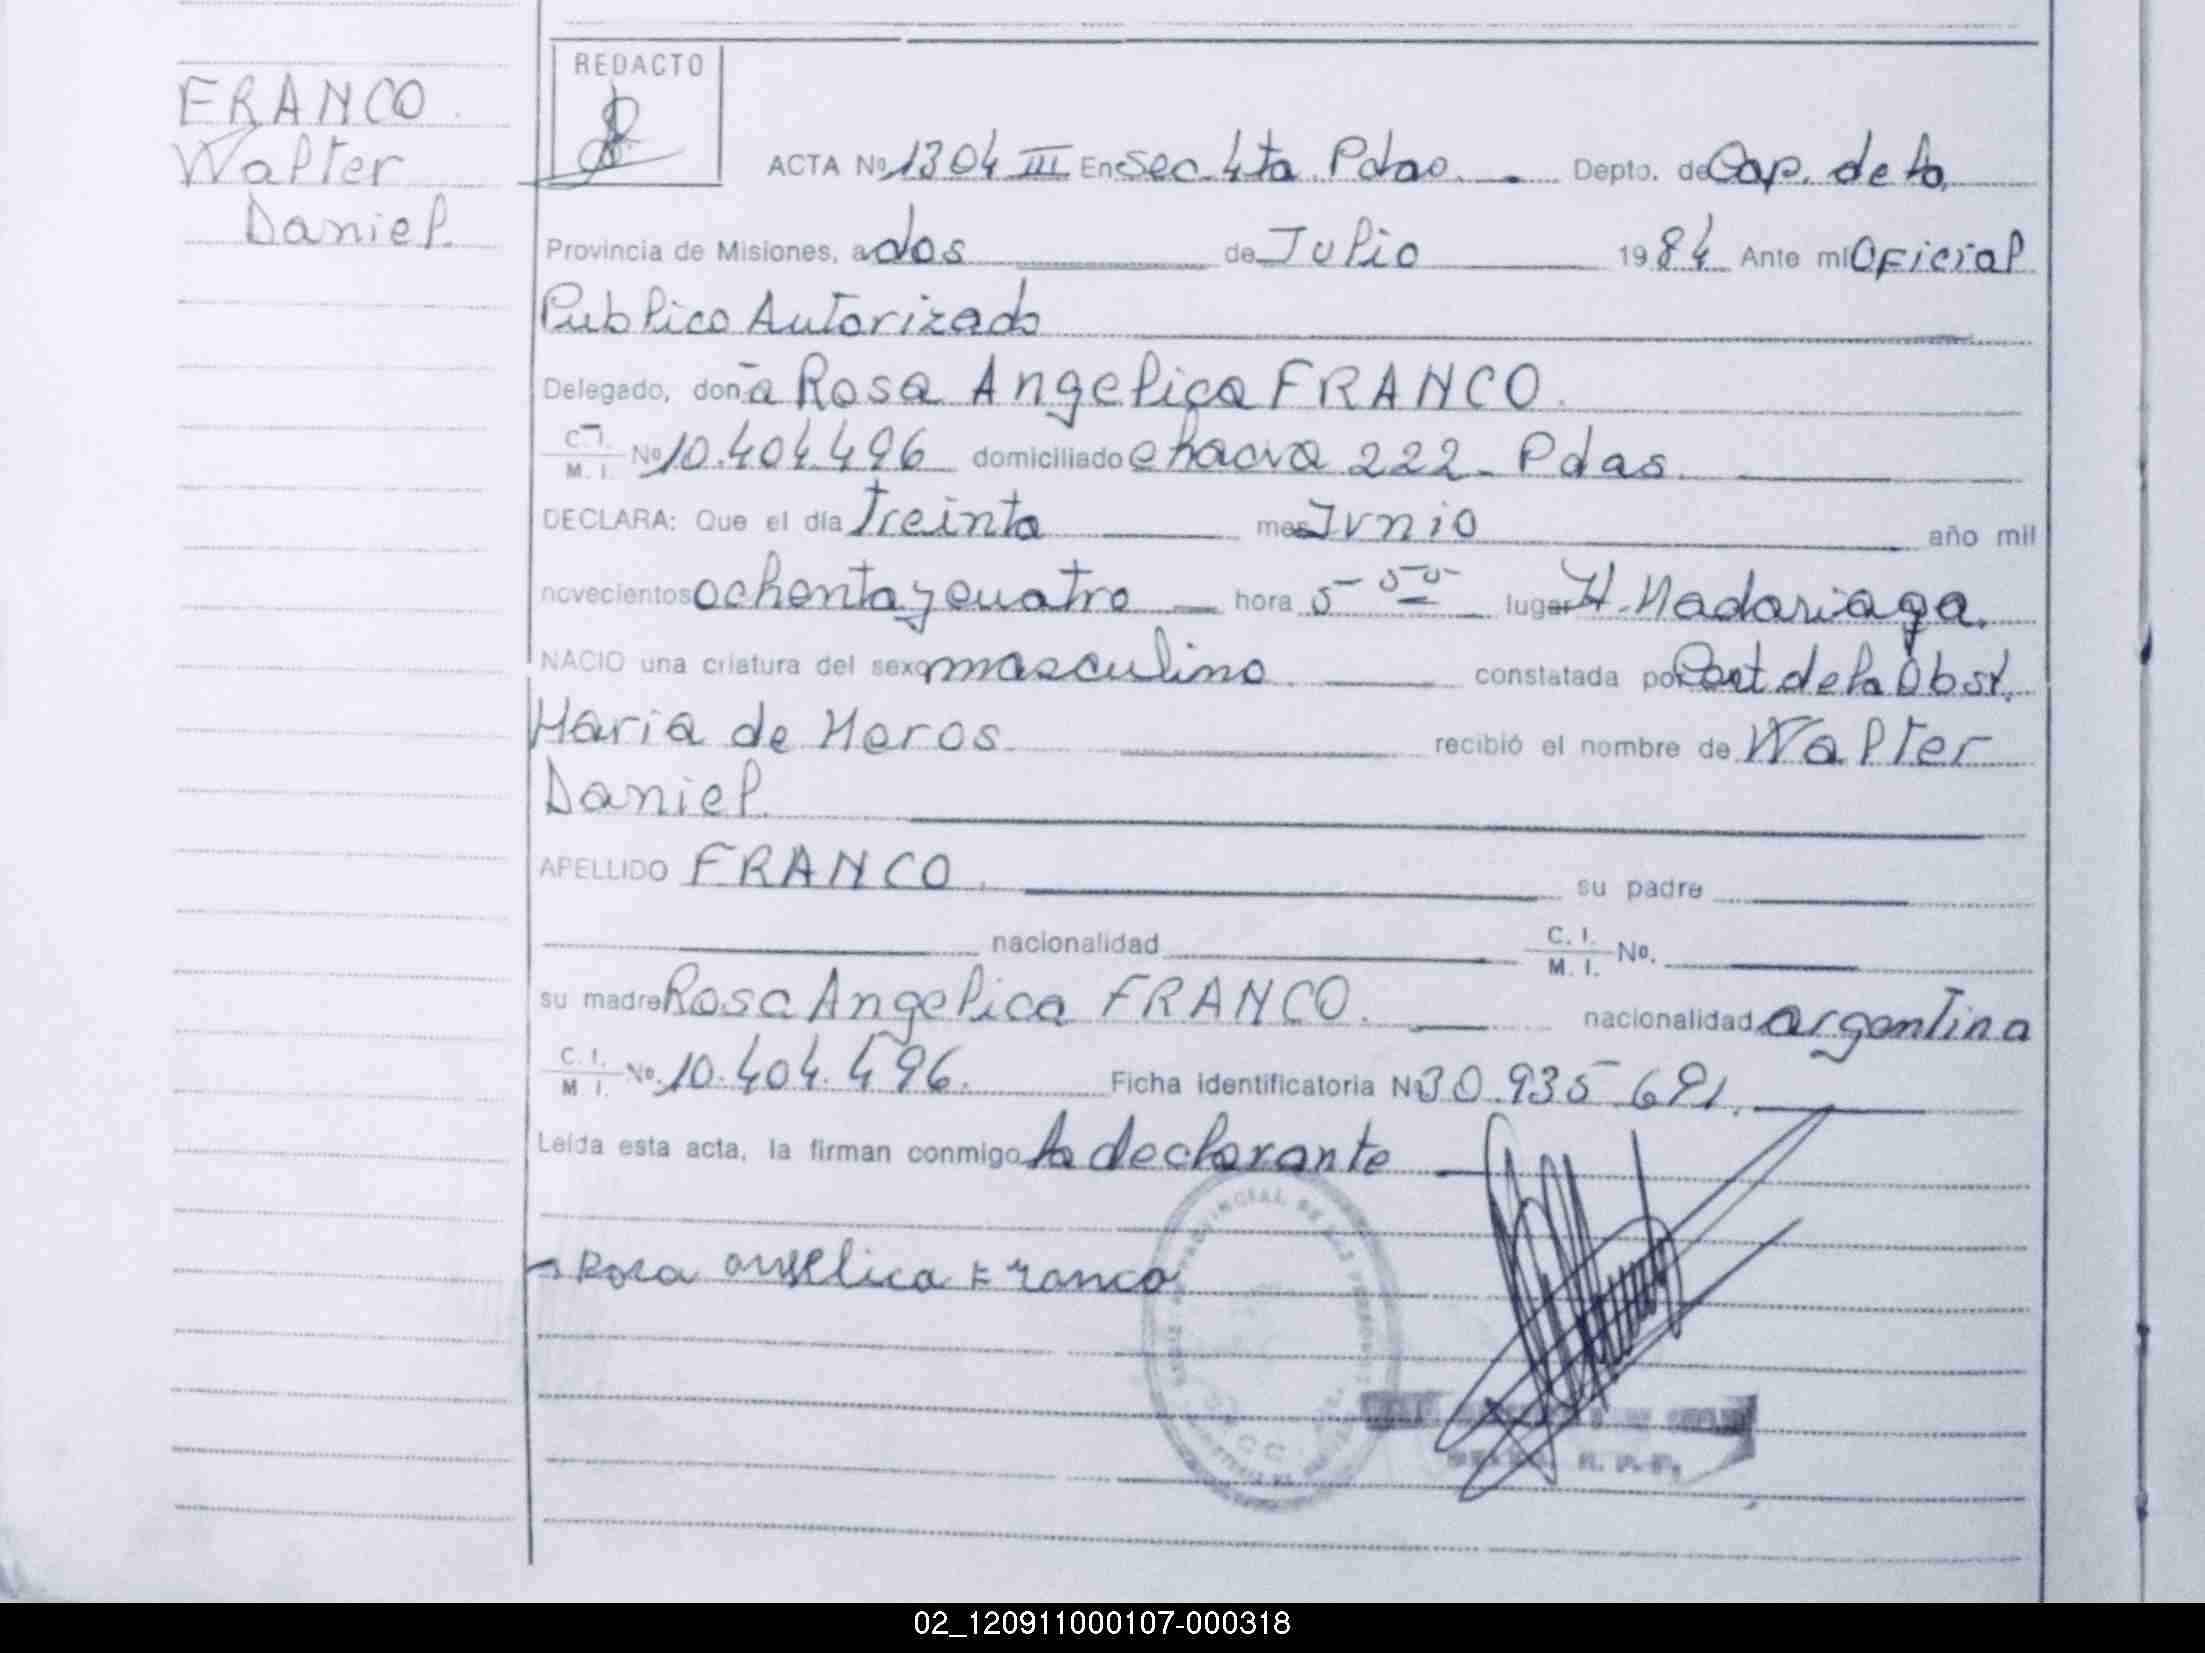 FRANCO.
Walter
Daniel.
REDACTO
ACTA Nº 1304 III En Sec. 4ta Pdas. Depto. de Cap. de la
Provincia de Misiones, a dos de Julio 1984 Ante mi Oficial
Publico Autorizado
Delegado, doña Rosa Angelica FRANCO.
C.I. M.I. Nº 10.404.496 domiciliado chacra 222 - Pdas.
DECLARA: Que el día treinta mes Junio año mil
novecientos ochenta y cuatro hora 5 lugar H. Madariaga.
NACIO una criatura del sexo masculino constatada por de la Obst.
Maria de Meros recibió el nombre de Walter
Daniel.
APELLIDO FRANCO. su padre
nacionalidad C.I. M.I. Nº.
su madre Rosa Angelica FRANCO. nacionalidad argentina
C.I. M.I. Nº. 10.404.496. Ficha identificatoria Nº 30.935 691.
Leída esta acta, la firman conmigo la declarante
Rosa angelica Franco
PROVINCIAL DE LAS PERSONAS
02_120911000107-000318